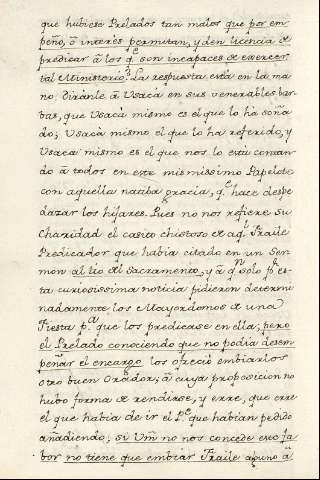 que hubiese Prelados tan malos que por em-
peño, ò interès permitan, y den licencia de
predicar à los q.e son incapaces de exercer
tal Ministerio? La respuesta està en la ma-
no, diràнle à Usaca en sus venerables bar-
bas, que Usaca mismo es el que lo ha soña-
do; Usaca mismo el que lo ha referido, y
Usaca mismo es el que nos lo està contan-
do à todos en este mismissimo Papelòn
con aquella nativa gracia, q.e hace despe-
dazar los hijares. Pues no nos refiere su
Charidad el casito chistoso de aq.l Fraile
Predicador que habia citado en un Ser-
mon al tio del Sacramento, y à q.n solo p.r es-
ta curiosissima noticia pidieron determi-
nadamente los Mayordomos de una
Fiesta p.a que los predicase en ella; pero
el Prelado conociendo que no podia desem-
peñar el encargo los ofreciò embiarlos
otro buen Orador; à cuya proposicion no
hubo forma de rendirse, y erre, que erre
el que habia de ir el P.e que habian pedido
añadiendo; si Vm no nos concede ese fa-
bor no tiene que embiar Fraile alguno à